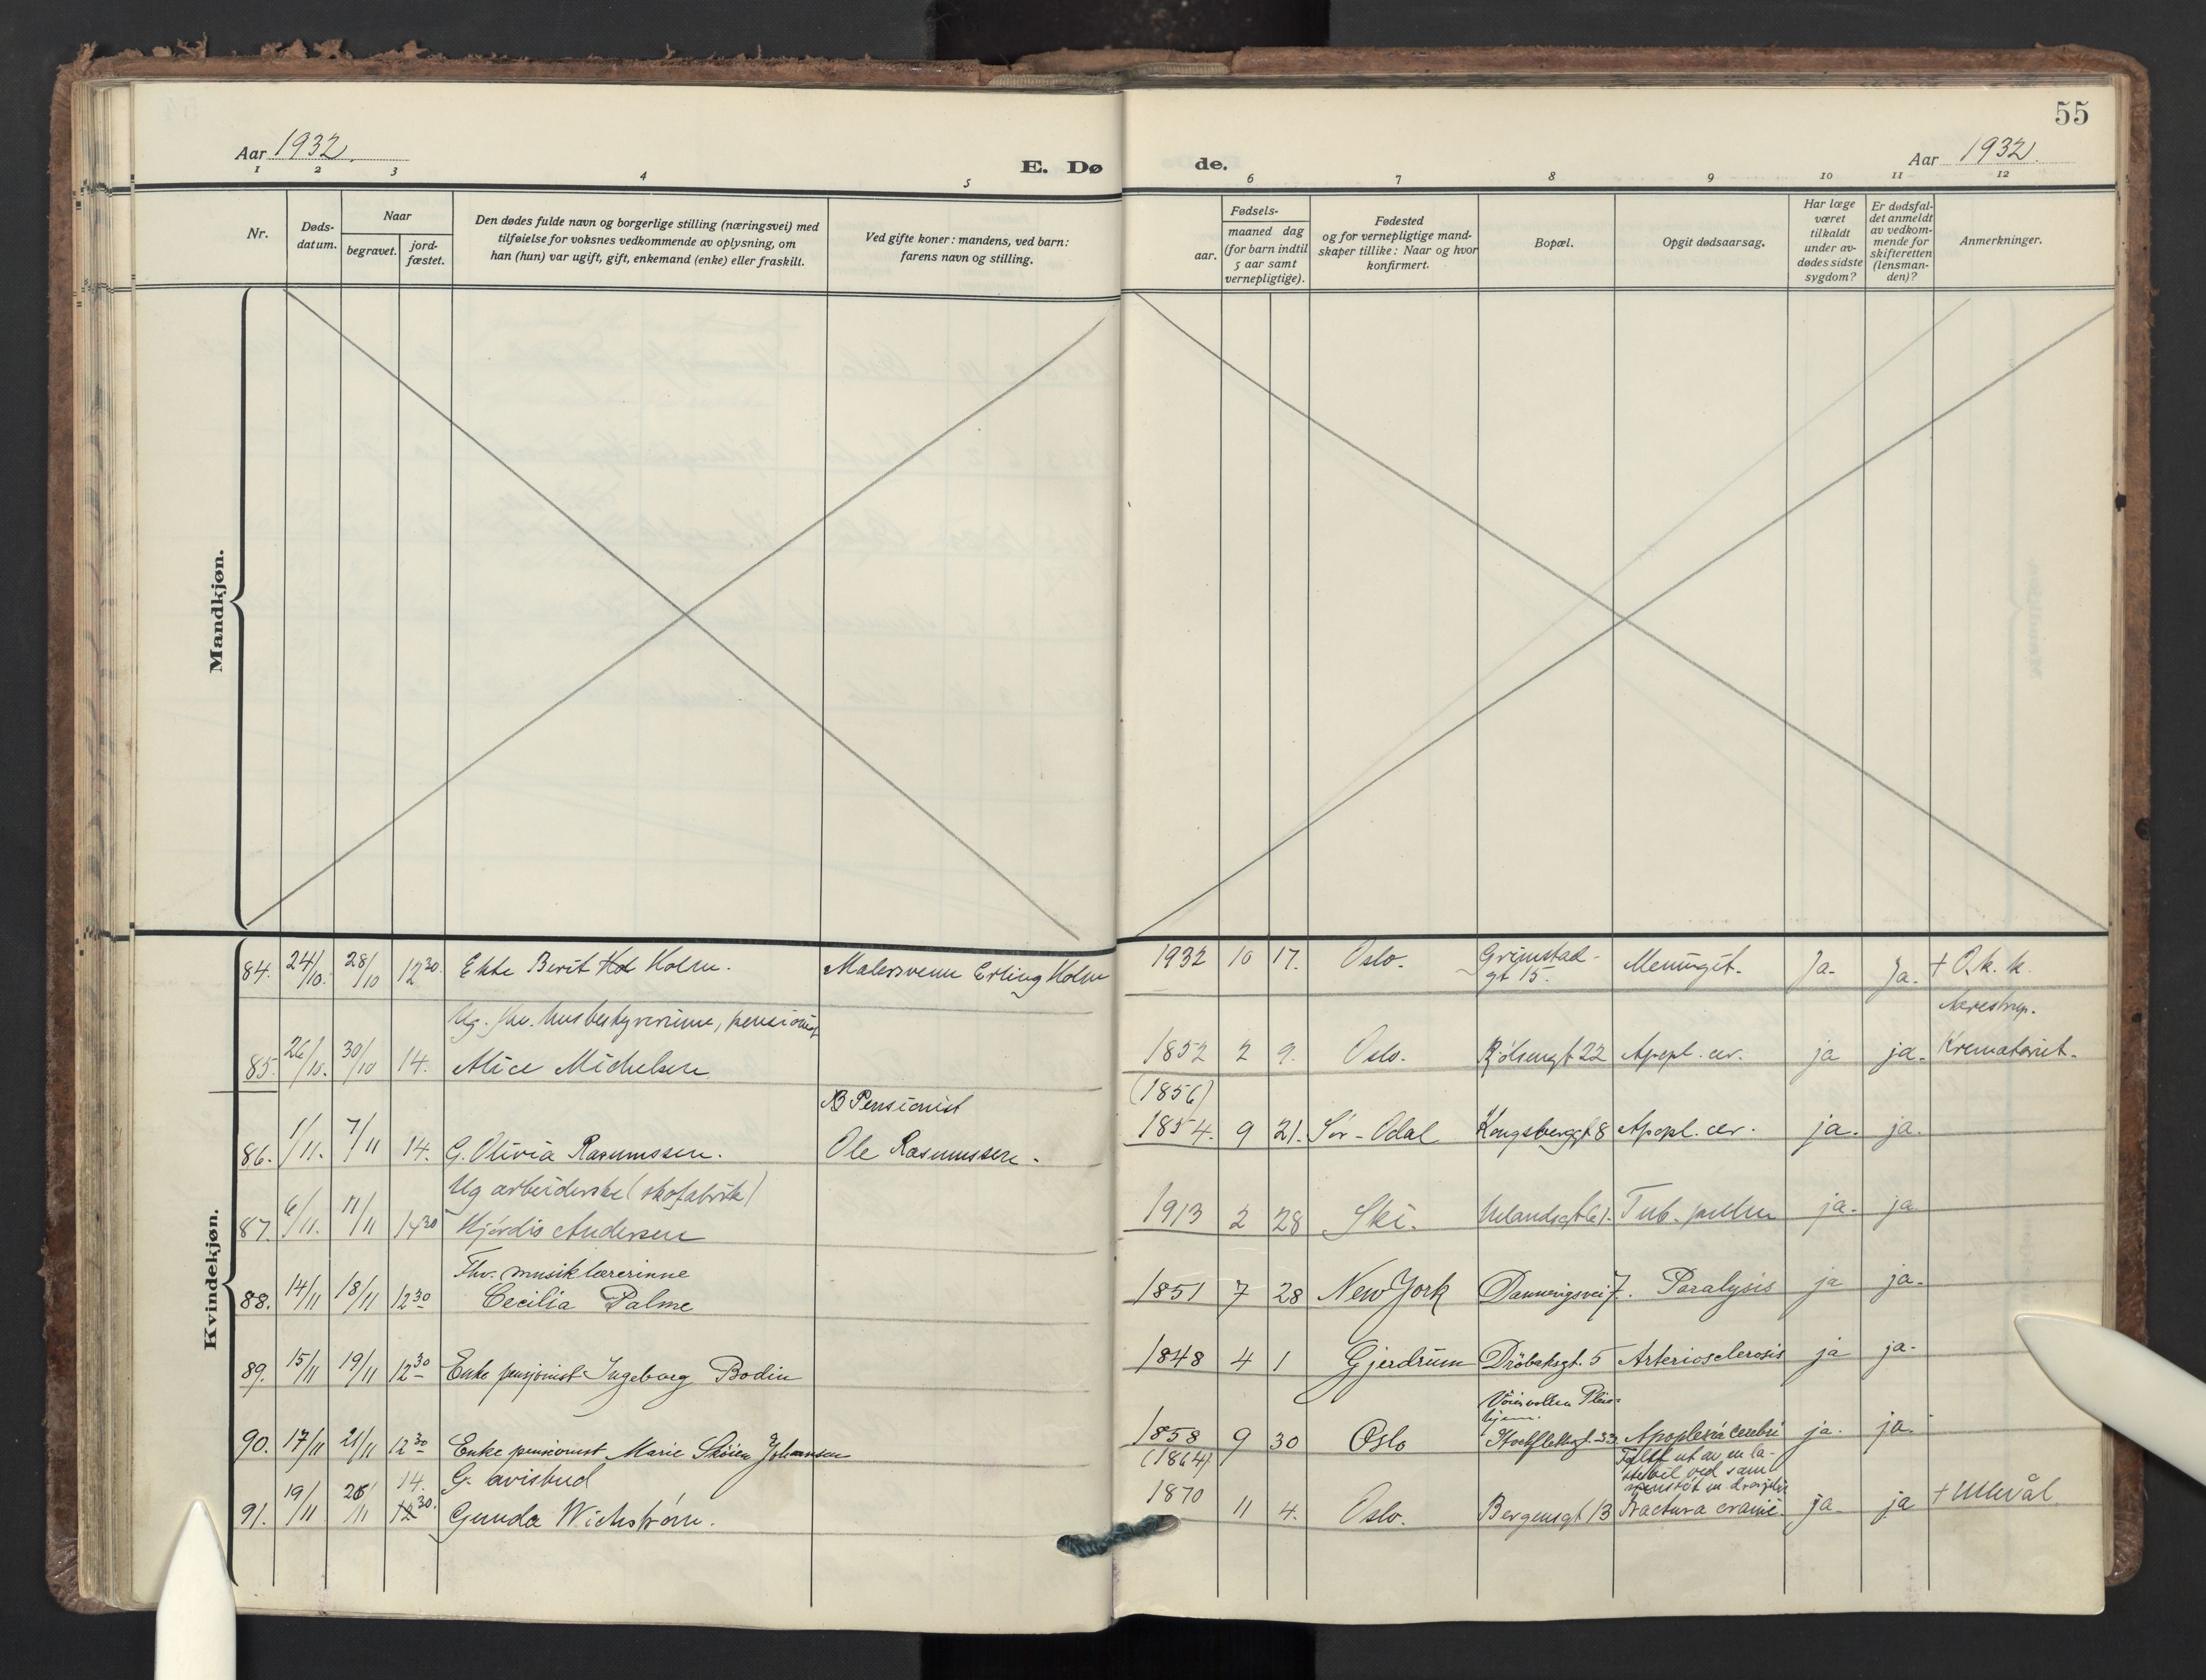 55
Aar 1932.
E. Dø
de.
Aar 1932.
1 2 3 4 5 6 7 8 9 10 11 12
Nr.
Døds-
datum.
Naar
begravet.
jord-
fæstet.
Den dødes fulde navn og borgerlige stilling (næringsvei) med
tilføielse for voksnes vedkommende av oplysning, om
han (hun) var ugift, gift, enkemand (enke) eller fraskilt.
Ved gifte koner: mandens, ved barn:
farens navn og stilling.
Fødsels-
aar.
maaned dag
(for barn indtil
5 aar samt
vernepligtige).
Fødested
og for vernepligtige mand-
skaper tillike: Naar og hvor
konfirmert.
Bopæl.
Opgit dødsaarsag.
Har læge
været
tilkaldt
under av-
dødes sidste
sygdom?
Er dødsfal-
det anmeldt
av vedkom-
mende for
skifteretten
(lensman-
den)?
Anmerkninger.
Mandkjøn.
Kvindekjøn.
84. 24/10. 28/10 12 30. Ekte Berit Holm. Malersvenn Erling Holm 1932 10 17. Oslo. Grimstad-
gt 15. Meningit. Ja- Ja. + O.k.k.
Ug. fhv. husbestyrerinne, pensionist
Aarestrup.
85. 26/10. 30/10 14. Alice Michelsen 1852 2 9. Oslo. 22 Apopl. cer. ja ja. Krematoriet.
B Pensionist
(1856)
86. 1/11. 7/11 14. G. Olivia Rasmussen. Ole Rasmussen. 1854. 9 21. Sør-Odal Kongsberggt. 8 Apopl. cer. ja. ja.
Ug arbeiderske (skofabrik)
87. 6/11. 11/11 14 30 Hjørdis Andersen 1913 2 28 Ski. Uelandsgt 61. Tub. pulm ja. ja
Fhv. musiklærerinne
88. 14/11 18/11 12 30 Cecilia Palme 1851 7 28 New York Dannevigsvei 7. Paralysis ja ja.
89. 15/11 19/11 12 30 Enke pensjonist Ingeborg Bodin 1848 4 1 Gjerdrum Drøbaksgt. 5 Arteriosclerosis ja ja.
Vöienvollen Pleie-
hjem.
90. 17/11 21/11 12 30 Enke pensionist Marie Skøien Johansen 1858 9 30 Oslo Stockflethsgt. 33 Apoplexia cerebri ja. ja.
(1864)
G. avisbud
Falt ut av en la-
stebil ved sam-
menstöt m. drosjebil
91. 19/11 26/11 14. 12 30. Gunda Wichstrøm. 1870 11 4. Oslo. Bergensgt 13 Fractura cranii. ja ja + Ullevål